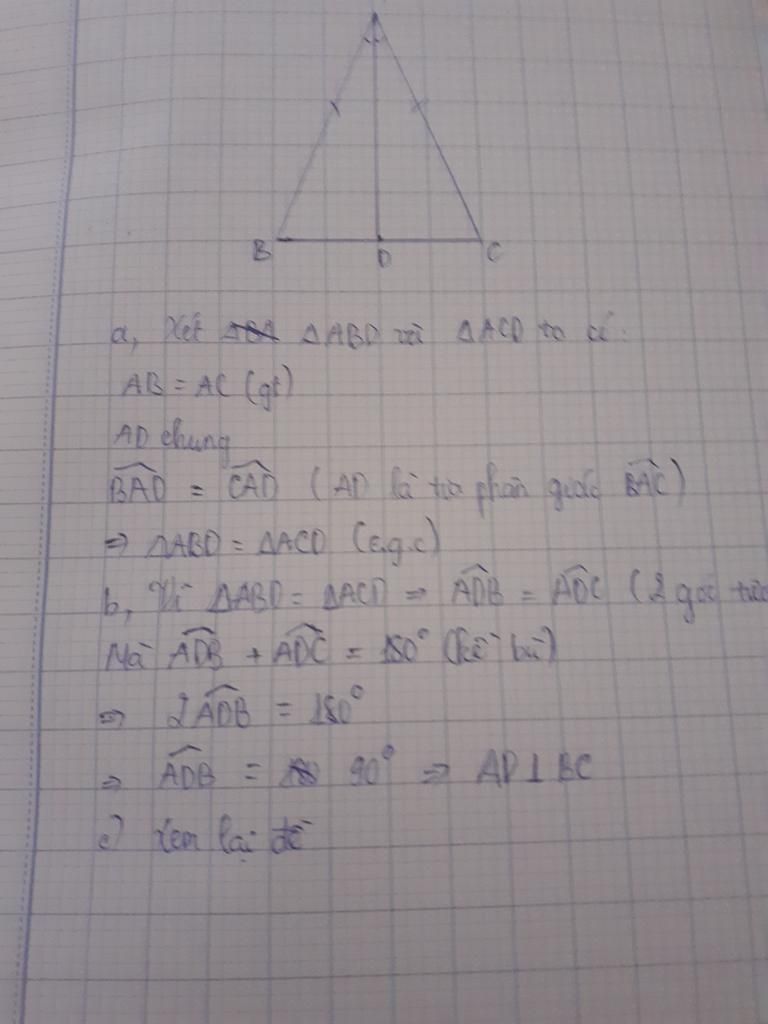 B D C
a, Xét ΔABD và ΔACD ta có:
AB = AC (gt)
AD chung
BAD = CAD (AD là tia phân giác BAC)
=> ΔABD = ΔACD (c.g.c)
b, Vì ΔABD = ΔACD => ADB = ADC (2 góc
Mà ADB + ADC = 180° (kề bù)
=> 2ADB = 180°
=> ADB = 90° => AD ⊥ BC
c) Xem lại đề